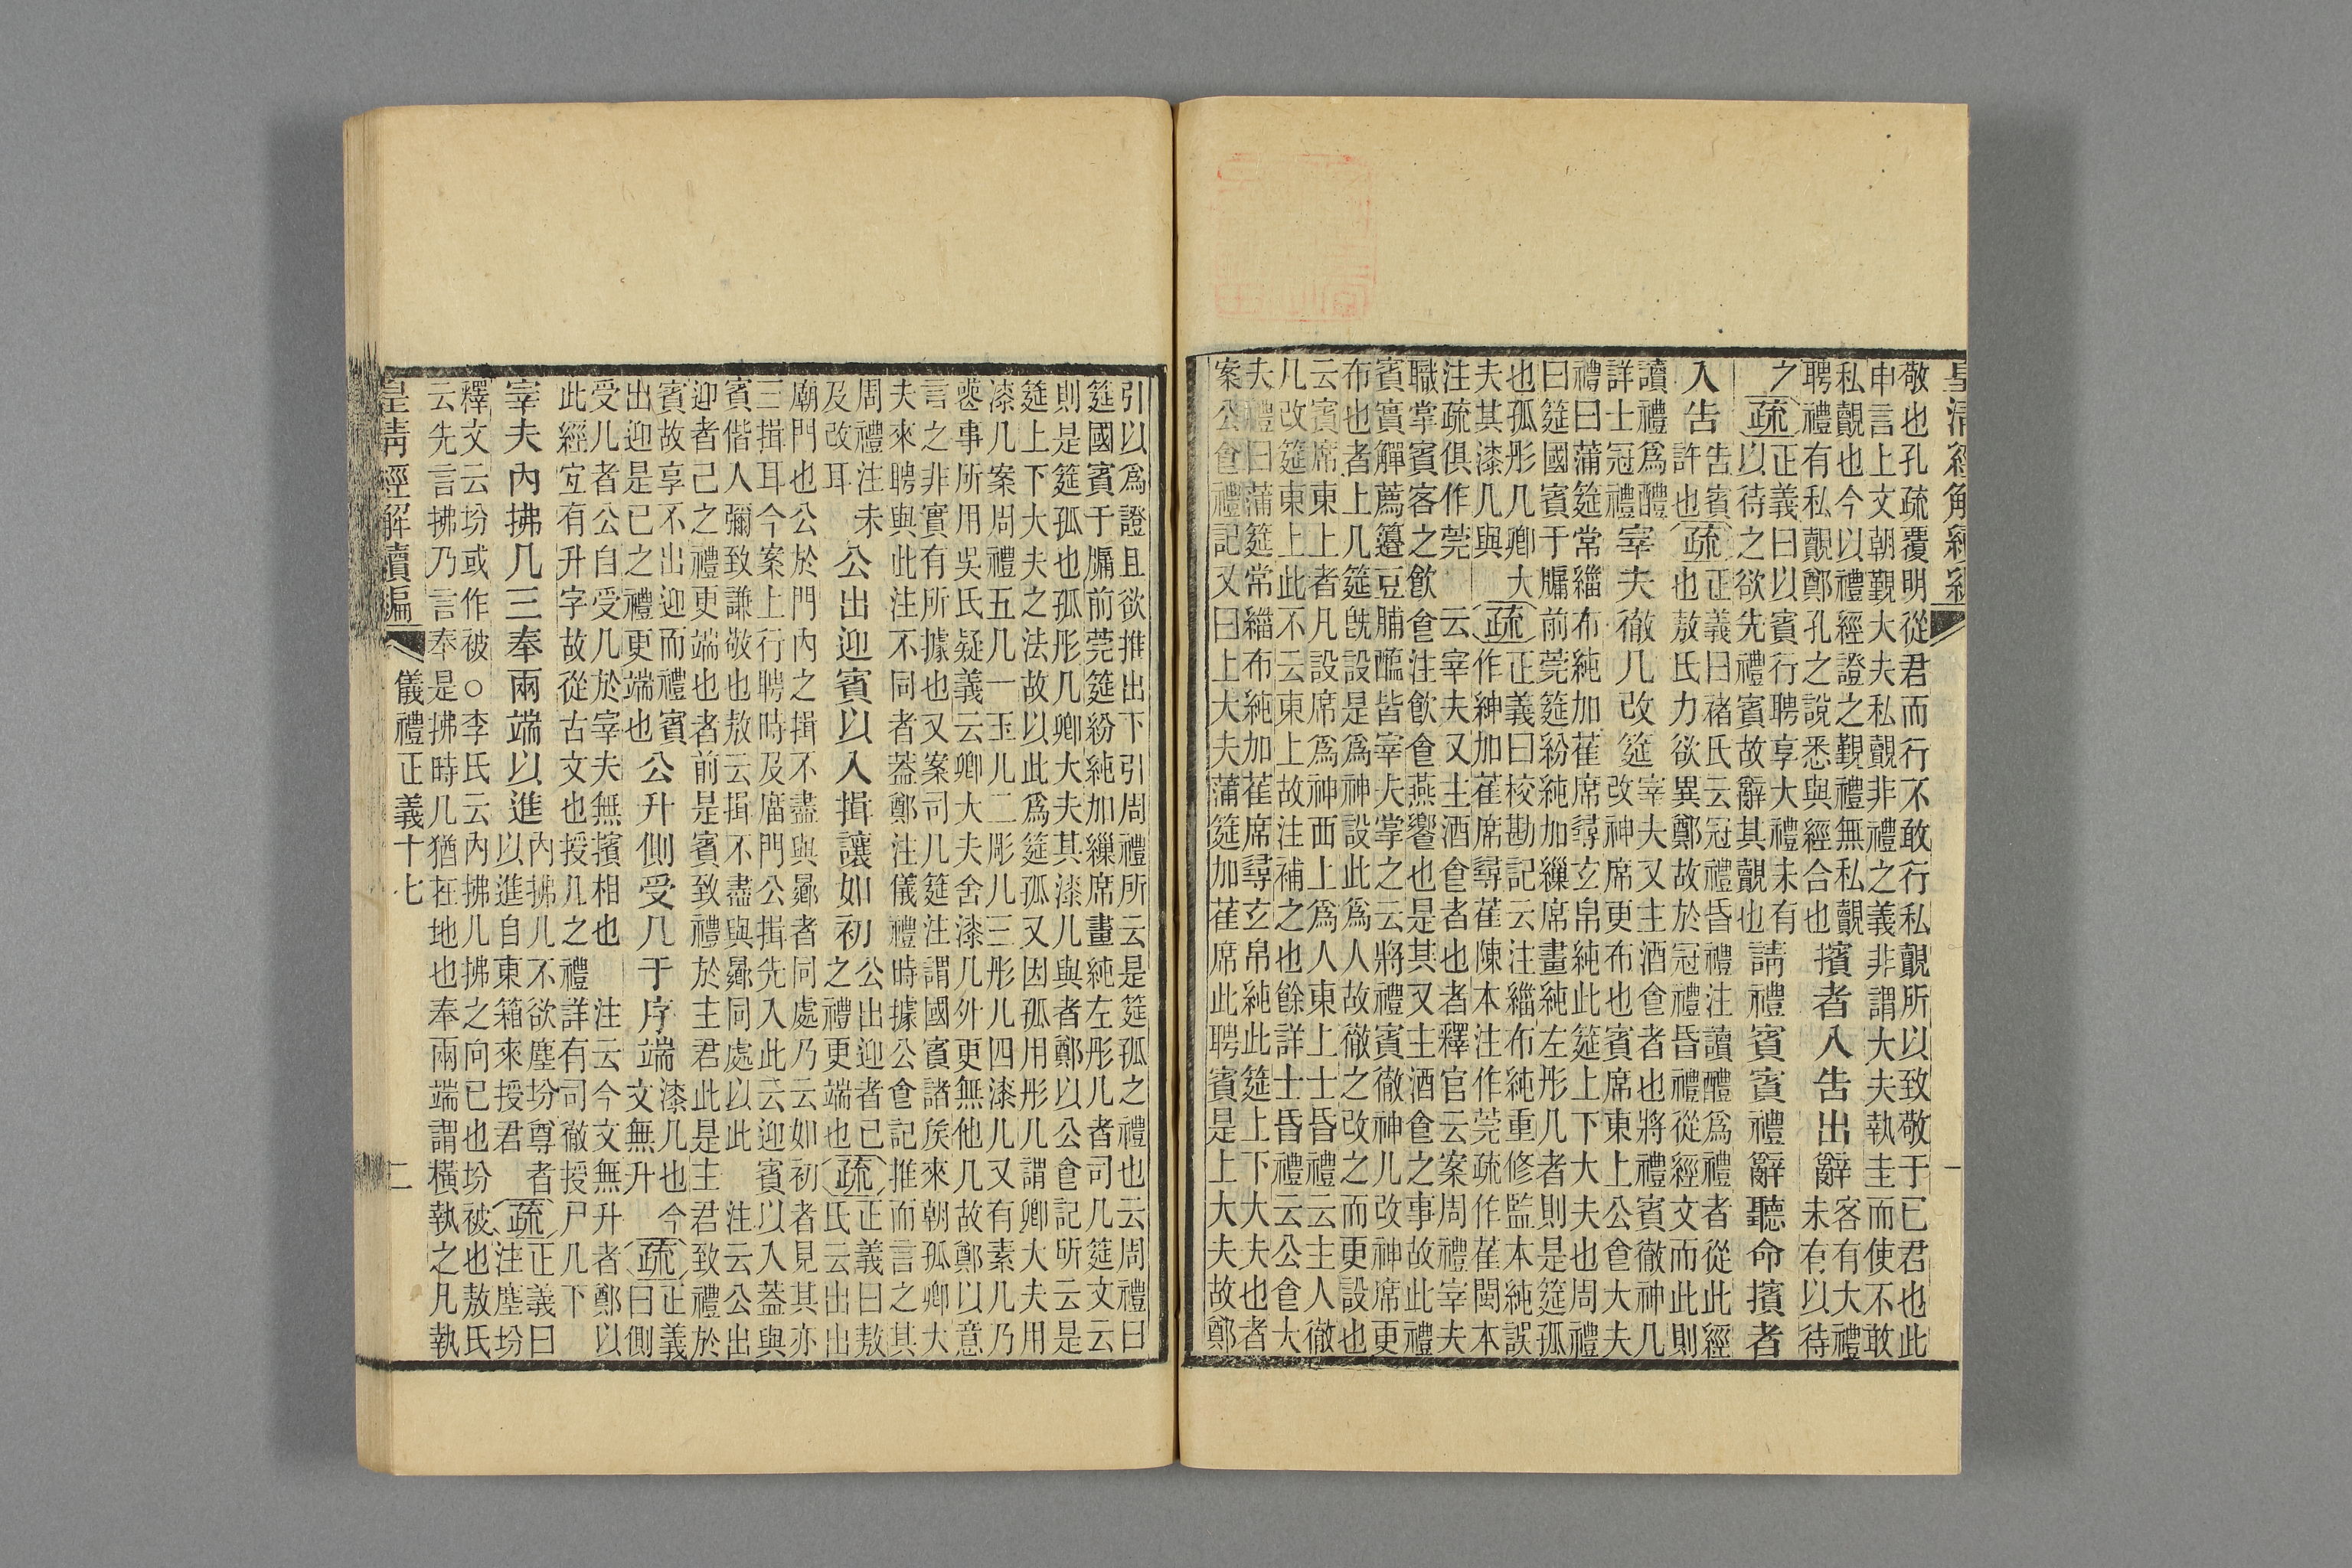 皇清經解續編
一
敬也孔疏覆明從君而行不敢行私覿所以致敬于已君也此
申言上文朝覲大夫私覿非禮之義非謂大夫執圭而使不敢
私覿也今以禮經證之覲禮無私覿
聘禮有私覿鄭孔之說悉與經合也
擯者入告出辭
客有大禮
未有以待
之
疏
正義曰以賓行聘享大禮未有
以待之欲先禮賓故辭其覿也
請禮賓賓禮辭聽命擯者
入告
告賓
許也
疏
正義曰禇氏云冠禮昏禮注讀醴爲禮者從此經
也敖氏力欲異鄭故於冠禮昏禮從經文而此則
讀禮爲醴
詳士冠禮
宰夫徹几改筵
宰夫又主酒食者也將禮賓徹神几
改神席更布也賓席東上公食大夫
禮曰蒲筵常緇布純加萑席尋玄帛純此筵上下大夫也周禮
曰筵國賓于牖前莞筵紛純加繅席畫純左彤几者則是筵孤
也孤彤几卿大
夫其漆几與
疏
正義曰校勘記云注緇布純重修監本純誤
作紳加萑席尋萑陳本注作莞疏作萑閩本
注疏俱作莞 云宰夫又主酒食者也者釋官云案周禮宰夫
職掌賓客之飲食注飲食燕饗也是其又主酒食之事故此禮
賓實觶薦籩豆脯醢皆宰夫掌之云將禮賓徹神几改神席更
布也者上几筵旣設是爲神設此爲人故徹之改之而更設也
云賓席東上者凡設席爲神西上爲人東上士昏禮云主人徹
几改筵東上此不云東上故注補之也餘詳士昏禮云公食大
夫禮曰蒲筵常緇布純加萑席尋玄帛純此筵上下大夫也者
案公食禮記又曰上大夫蒲筵加萑席此聘賓是上大夫故鄭
引以爲證且欲推出下引周禮所云是筵孤之禮也云周禮曰
筵國賓于牖前莞筵紛純加繅席畫純左彤几者司几筵文云
則是筵孤也孤彤几卿大夫其漆几與者鄭以公食記所云是
筵上下大夫之法故以此爲筵孤又因孤用彤几謂卿大夫用
漆几案周禮五几一玉几二彫几三彤几四漆几又有素几乃
喪事所用吳氏疑義云卿大夫舍漆几外更無他几故鄭以意
言之非實有所據也又案司几筵注謂國賓諸矦來朝孤卿大
夫來聘與此注不同者葢鄭注儀禮時據公食記推而言之其
周禮注未
及改耳
公出迎賓以入揖讓如初
公出迎者已
之禮更端也
疏
正義曰敖
氏云出出
廟門也公於門內之揖不盡與曏者同處乃云如初者見其亦
三揖耳今案上行聘時及庿門公揖先入此云迎賓以入葢與
賓偕人彌致謙敬也敖云揖不盡與曏同處以此 注云公出
迎者己之禮更端也者前是賓致禮於主君此是主君致禮於
賓故享不出迎而禮賓
出迎是已之禮更端也
公升側受几于序端
漆几也今
文無升
疏
正義
曰側
受几者公自受几於宰夫無擯相也 注云今文無升者鄭以
此經宐有升字故從古文也授几之禮詳有司徹授尸几下
宰夫內拂几三奉兩端以進
內拂几不欲塵坋尊者
以進自東箱來授君
疏
正義曰
注塵坋
釋文云坋或作被○李氏云內拂几拂之向已也坋被也敖氏
云先言拂乃言奉是拂時几猶在地也奉兩端謂橫執之凡執
皇清經解續編
儀禮正義十七
二